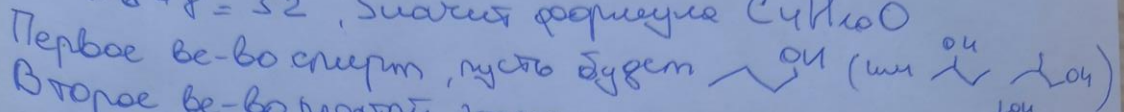 = 32, Значит формула C4H10O
Первое ве-во спирт, пусть будет OH (или OH OH)
Второе ве-во